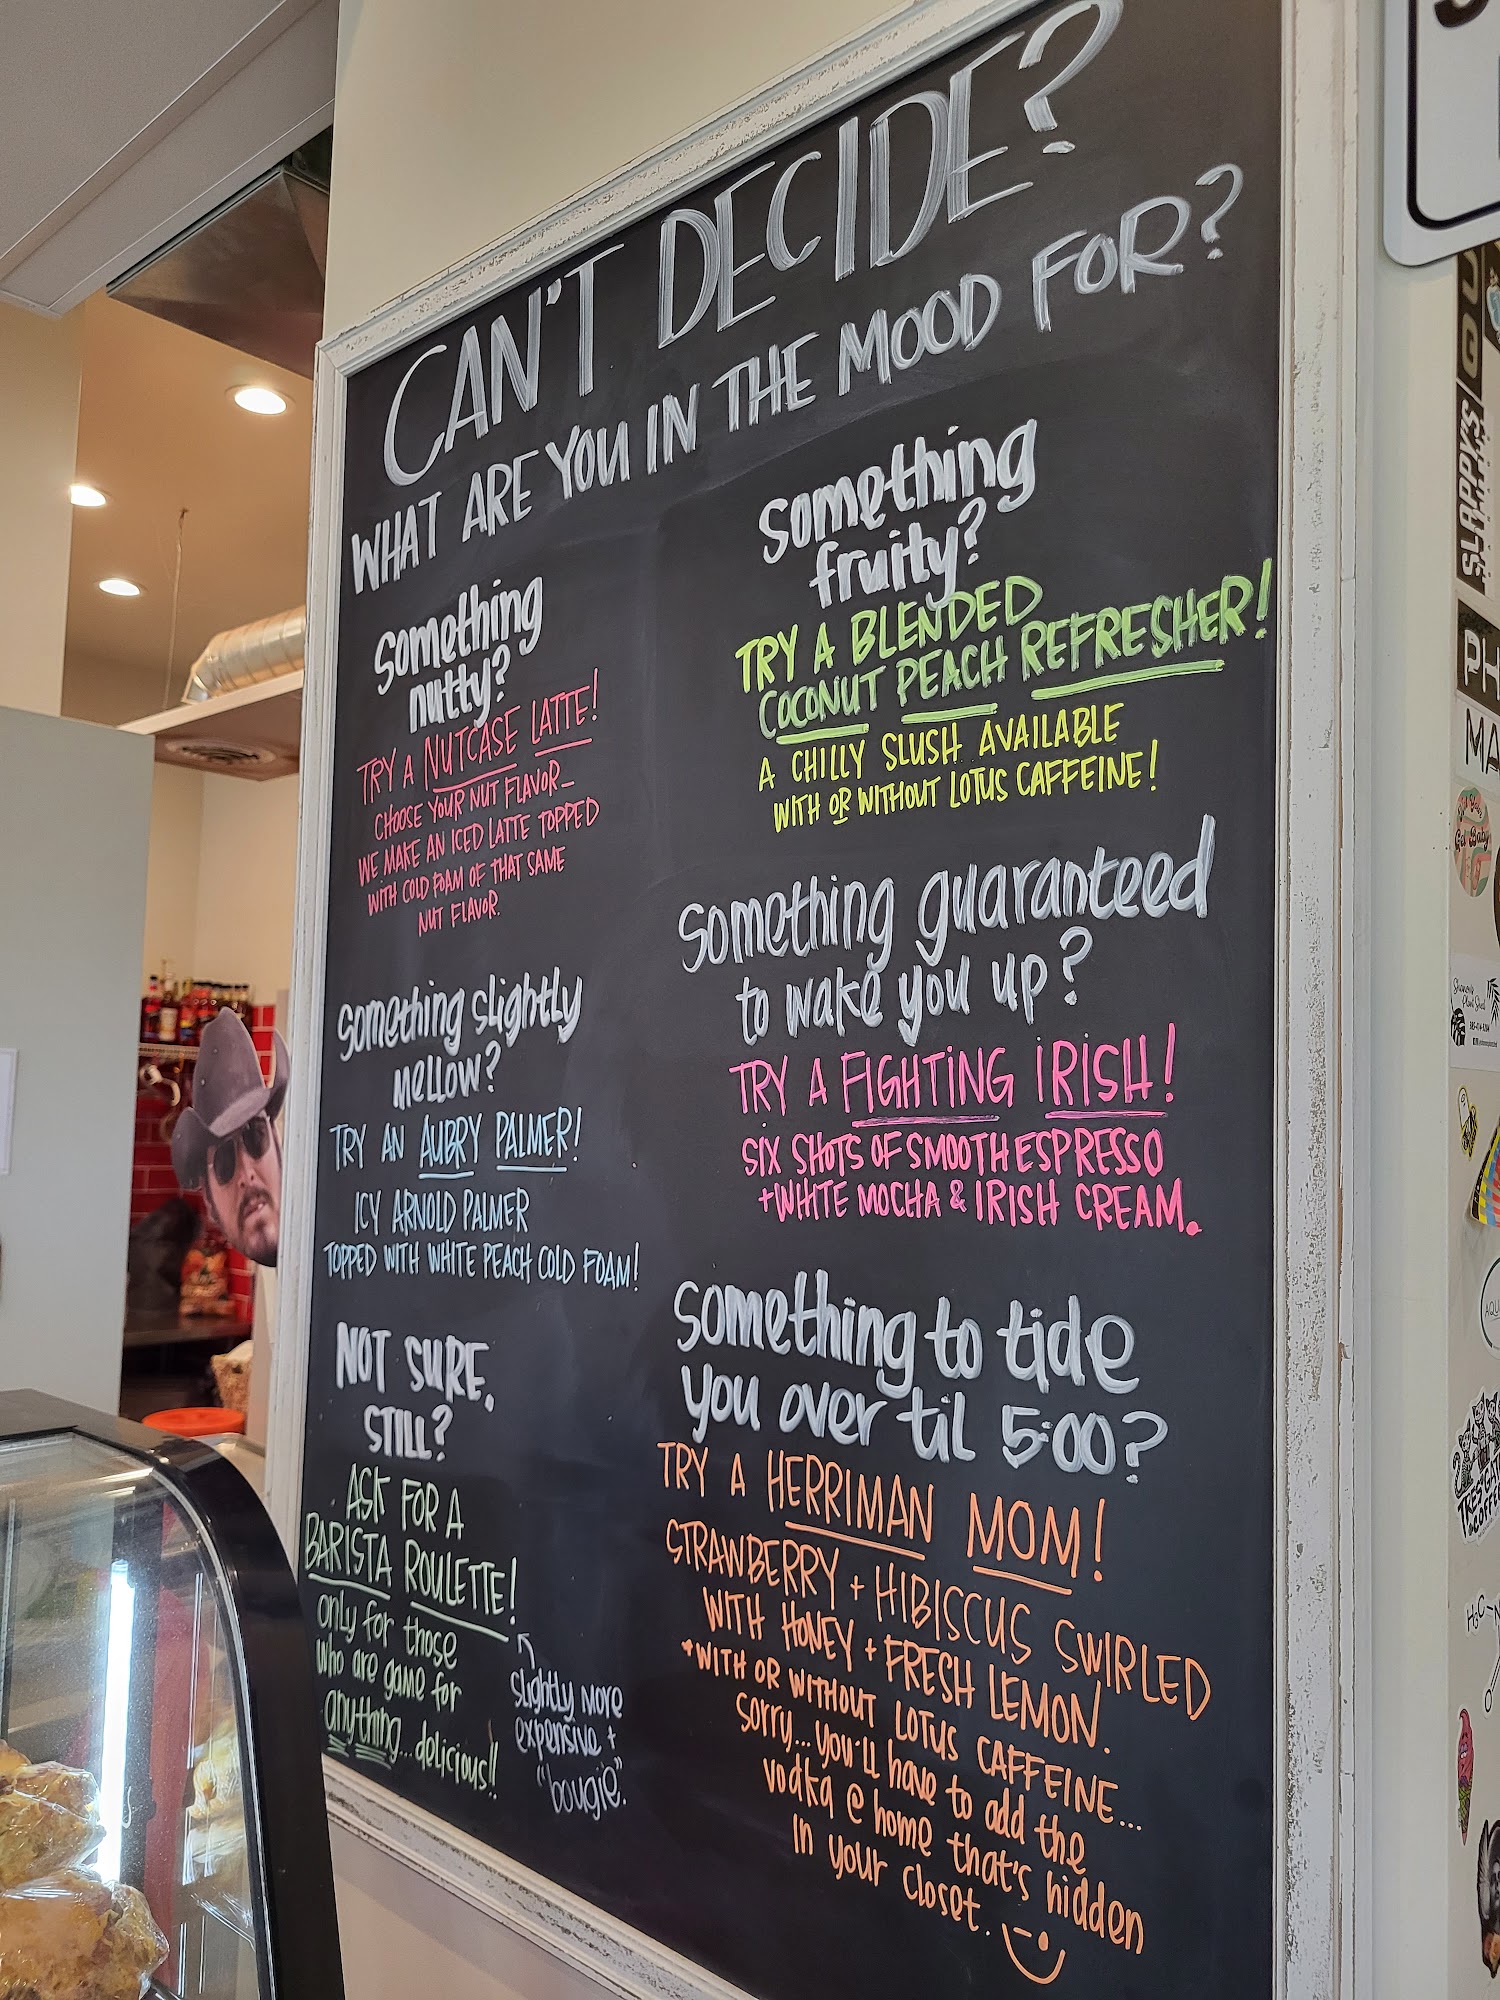 CAN'T DECIDE?
WHAT ARE YOU IN THE MOOD FOR?
Something
nutty?
TRY A NUTCASE LATTE!
CHOOSE YOUR NUT FLAVOR—
WE MAKE AN ICED LATTE TOPPED
WITH COLD FOAM OF THAT SAME
NUT FLAVOR.
Something slightly
MELLOW?
TRY AN AUBRY PALMER!
ICY ARNOLD PALMER
TOPPED WITH WHITE PEACH COLD FOAM!
NOT SURE,
STILL?
ASK FOR A
BARISTA ROULETTE!
only for those
who are game for
anything...delicious!!
slightly more
expensive +
"bougie."
Something
fruity?
TRY A BLENDED
COCONUT PEACH REFRESHER!
A CHILLY SLUSH AVAILABLE
WITH OR WITHOUT LOTUS CAFFEINE!
Something guaranteed
to wake you up?
TRY A FIGHTING IRISH!
SIX SHOTS OF SMOOTH ESPRESSO
+WHITE MOCHA & IRISH CREAM.
Something to tide
you over til 5:00?
TRY A HERRIMAN MOM!
STRAWBERRY + HIBISCUS SWIRLED
WITH HONEY + FRESH LEMON.
*WITH OR WITHOUT LOTUS CAFFEINE...
Sorry...you'll have to add the
vodka @ home that's hidden
in your closet.
SLAPPY'S
PH
MA
AQU
TRES GATOS
COFFEE
H3C-N